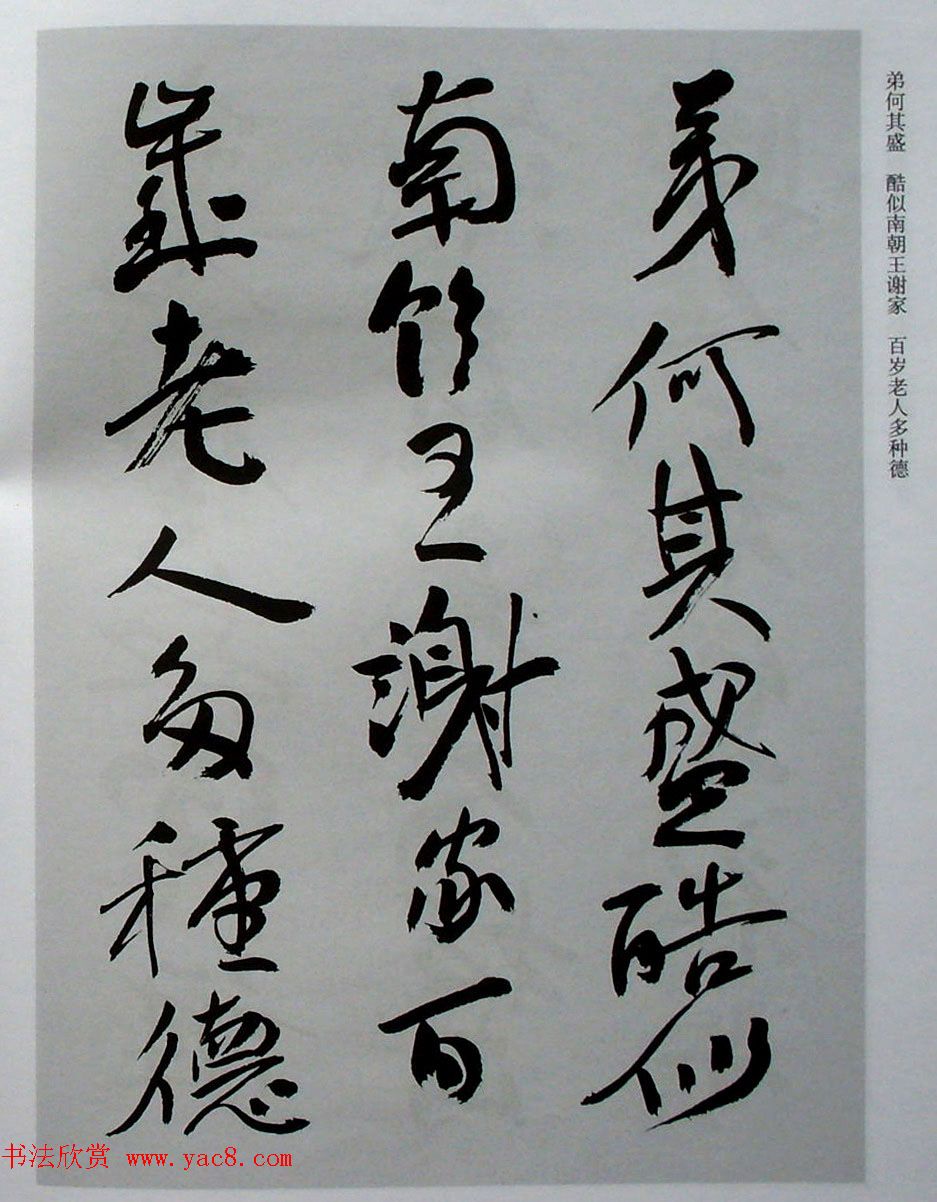 弟何其盛酷似
南朝王謝家百
歲老人多種德
弟何其盛 酷似南朝王谢家 百岁老人多种德
书法欣赏 www.yac8.com